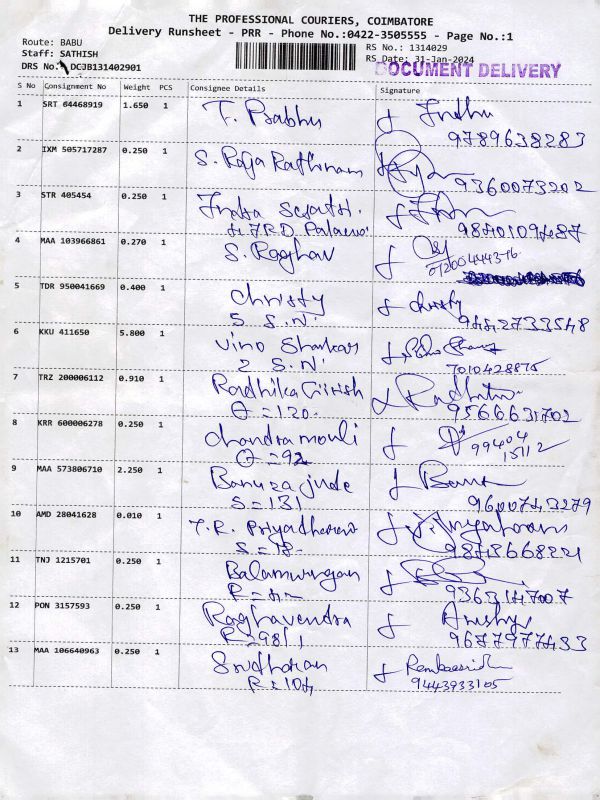 THE PROFESSIONAL COURIERS, COIMBATORE
Delivery Runsheet - PRR - Phone No.:0422-3505555 - Page No.:1
Route: BABU
Staff: SATHISH
DRS No: DCJB131402901
RS No.: 1314029
RS Date: 31-Jan-2024
DOCUMENT DELIVERY
S No Consignment No Weight PCS Consignee Details Signature
1 SRT 64468919 1.650 1 T. Prabhu
9789638283
2 IXM 505717287 0.250 1 S. Raja Rathinam
9360073202
3 STR 405454 0.250 1
4 MAA 103966861 0.270 1 S. Raghav
5 TDR 950041669 0.400 1 Christy Christy
5 S.N. 9442733548
6 KKU 411650 5.800 1 Vino Shankar
2 S.N. 7010428875
7 TRZ 200006112 0.910 1 Radhika Girish
= 120 9566631702
8 KRR 600006278 0.250 1 Chandramouli 99404
= 92 15112
9 MAA 573806710 2.250 1 jude
S = 131 9600743279
10 AMD 28041628 0.010 1 T.R.
S = 18 9843668221
11 TNJ 1215701 0.250 1 Balamurugan
9363147007
12 PON 3157593 0.250 1 Raghavendra
9677977433
13 MAA 106640963 0.250 1 Sridharan
R = 104 9443933105